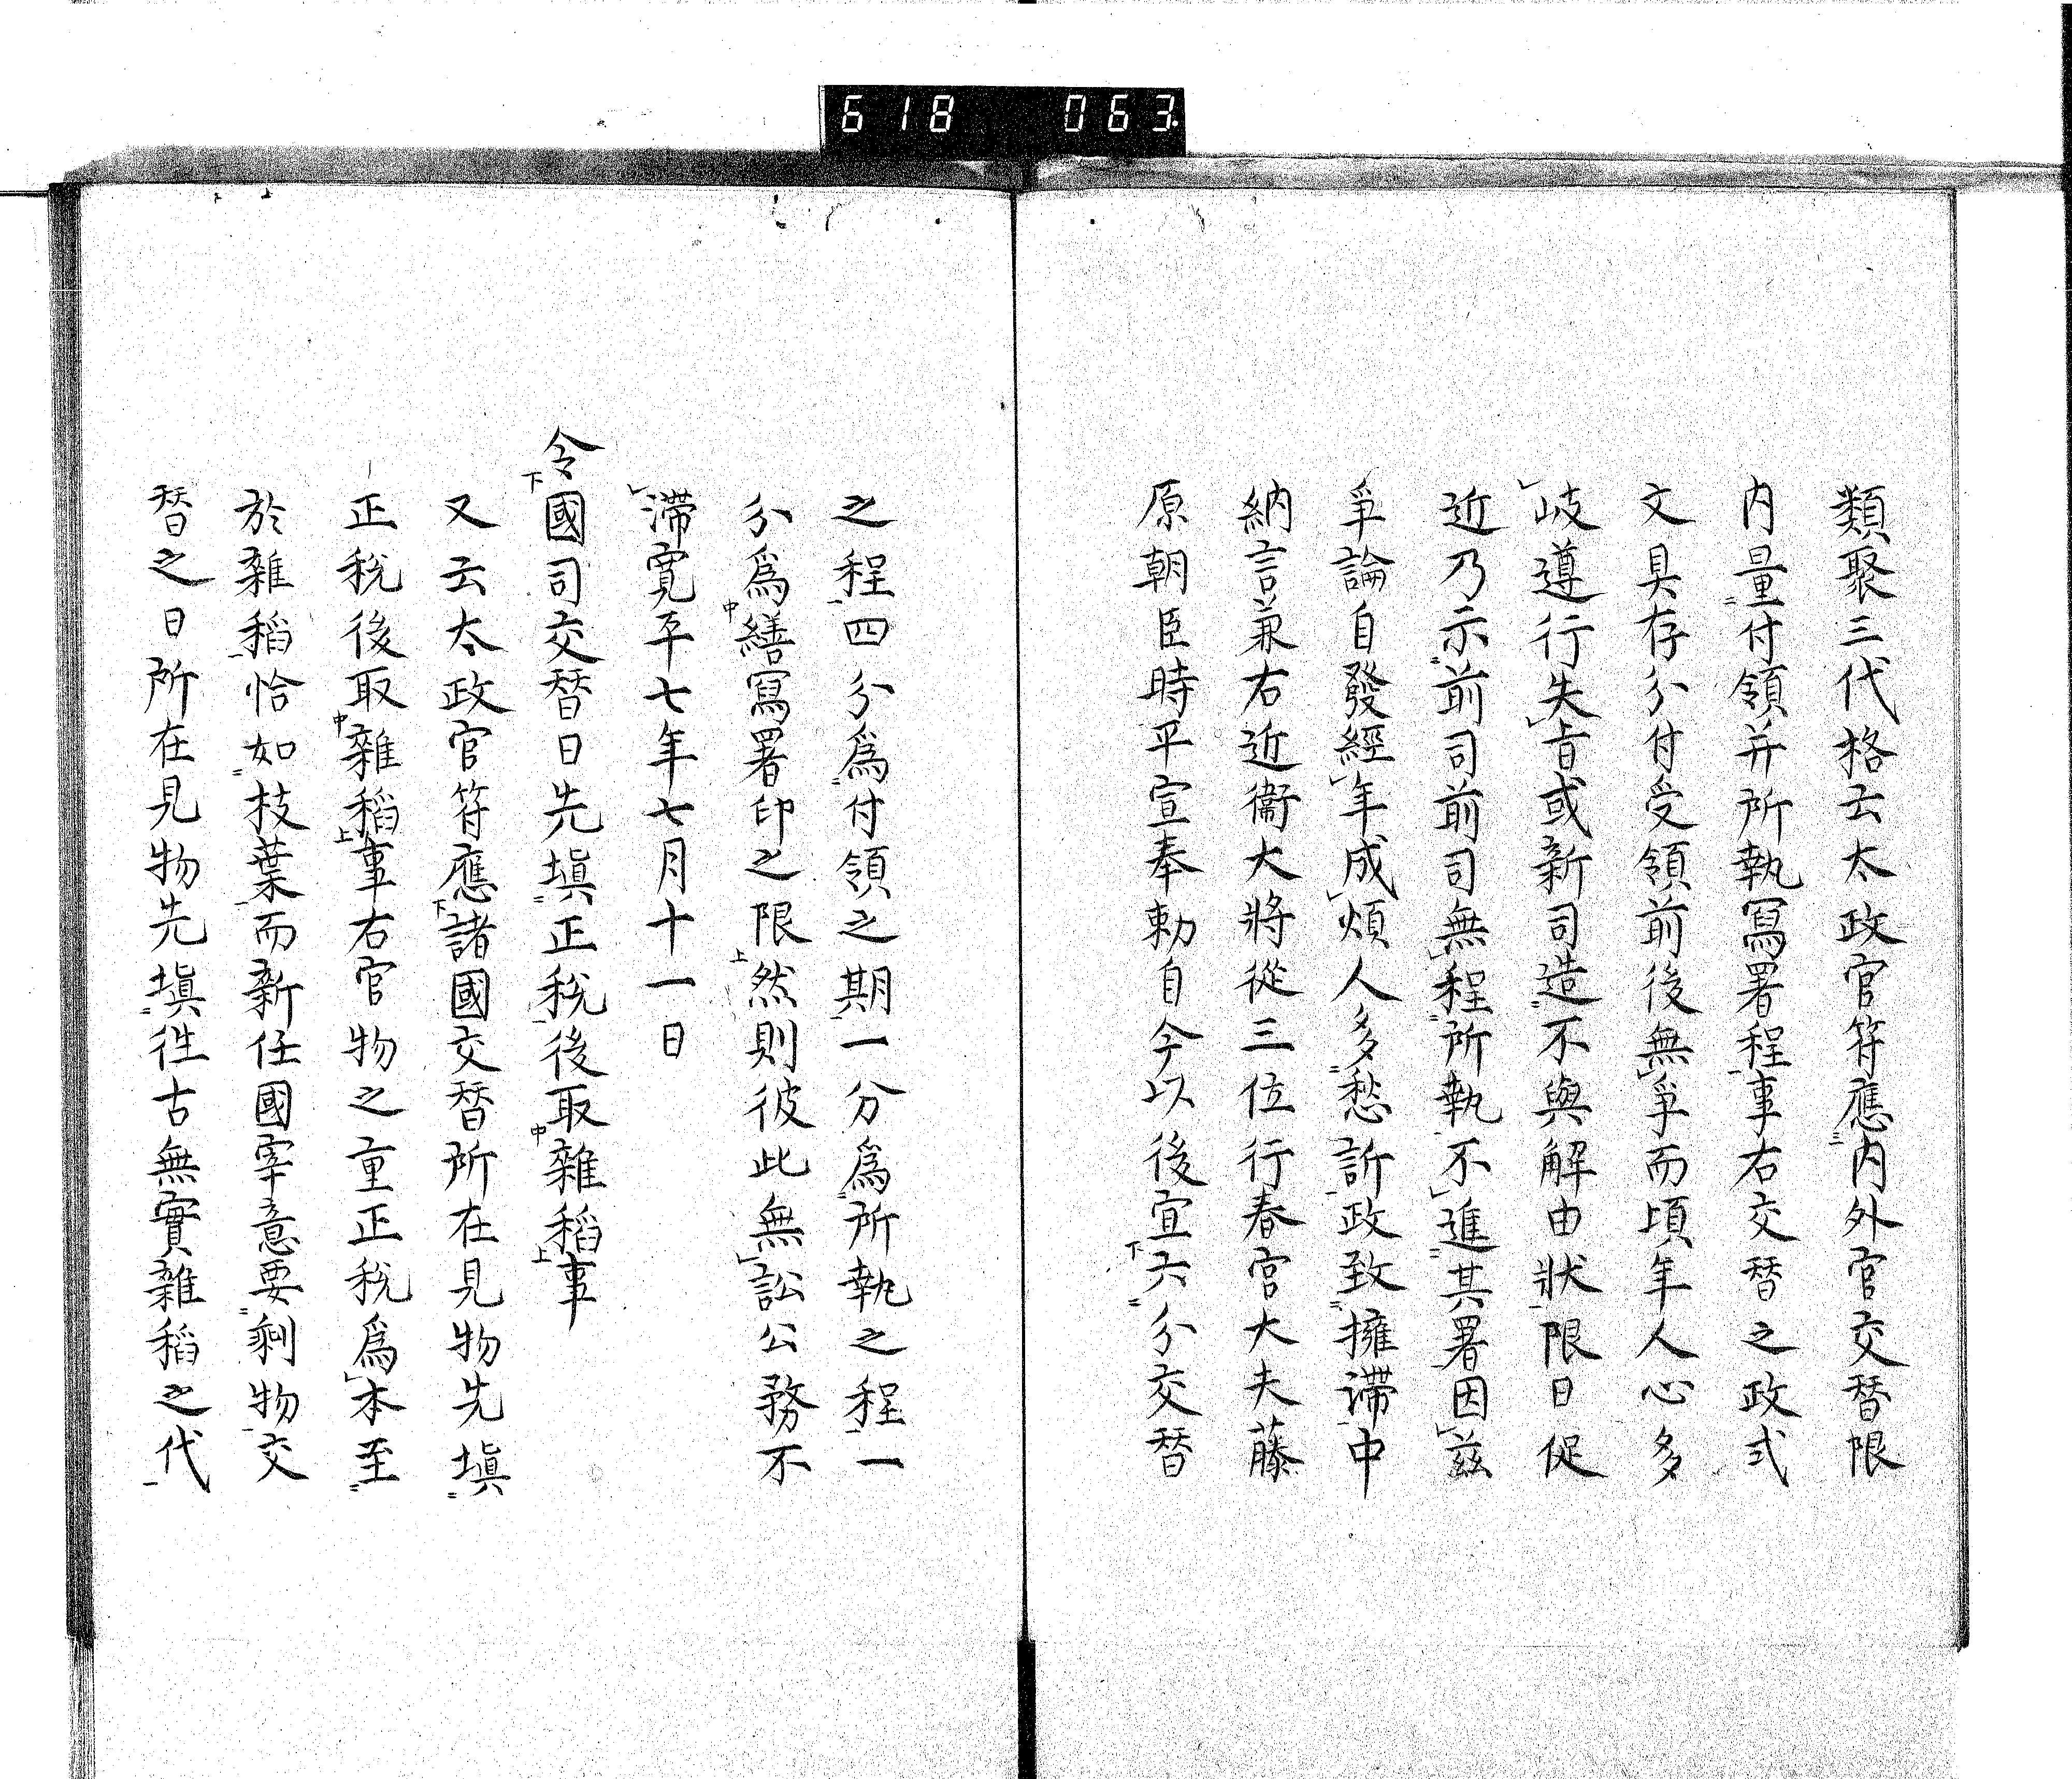 618 063
類聚三代格云太政官符應内外官交替限
内量付領并所執冩署程事右交替之政式
文具存分付受領前後無爭而頃年人心多
岐遵行失旨或新司造不與解由狀限日促
近乃示前司前司無程所執不進其署因茲
爭論自發經年成煩人多愁訴政致擁滯中
納言兼右近衞大將從三位行春宮大夫藤
原朝臣時平宣奉勅自今以後宜六分交替
之程四分爲付領之期一分爲所執之程一
分爲繕冩署印之限然則彼此無訟公務不
滯寛平七年七月十一日
令國司交替日先塡正税後取雜稻事
又云太政官符應諸國交替所在見物先塡
正税後取雜稻事右官物之重正税爲本至
於雜稻恰如枝葉而新任國宰意要剩物交
替之日所在見物先塡徃古無實雜稻之代